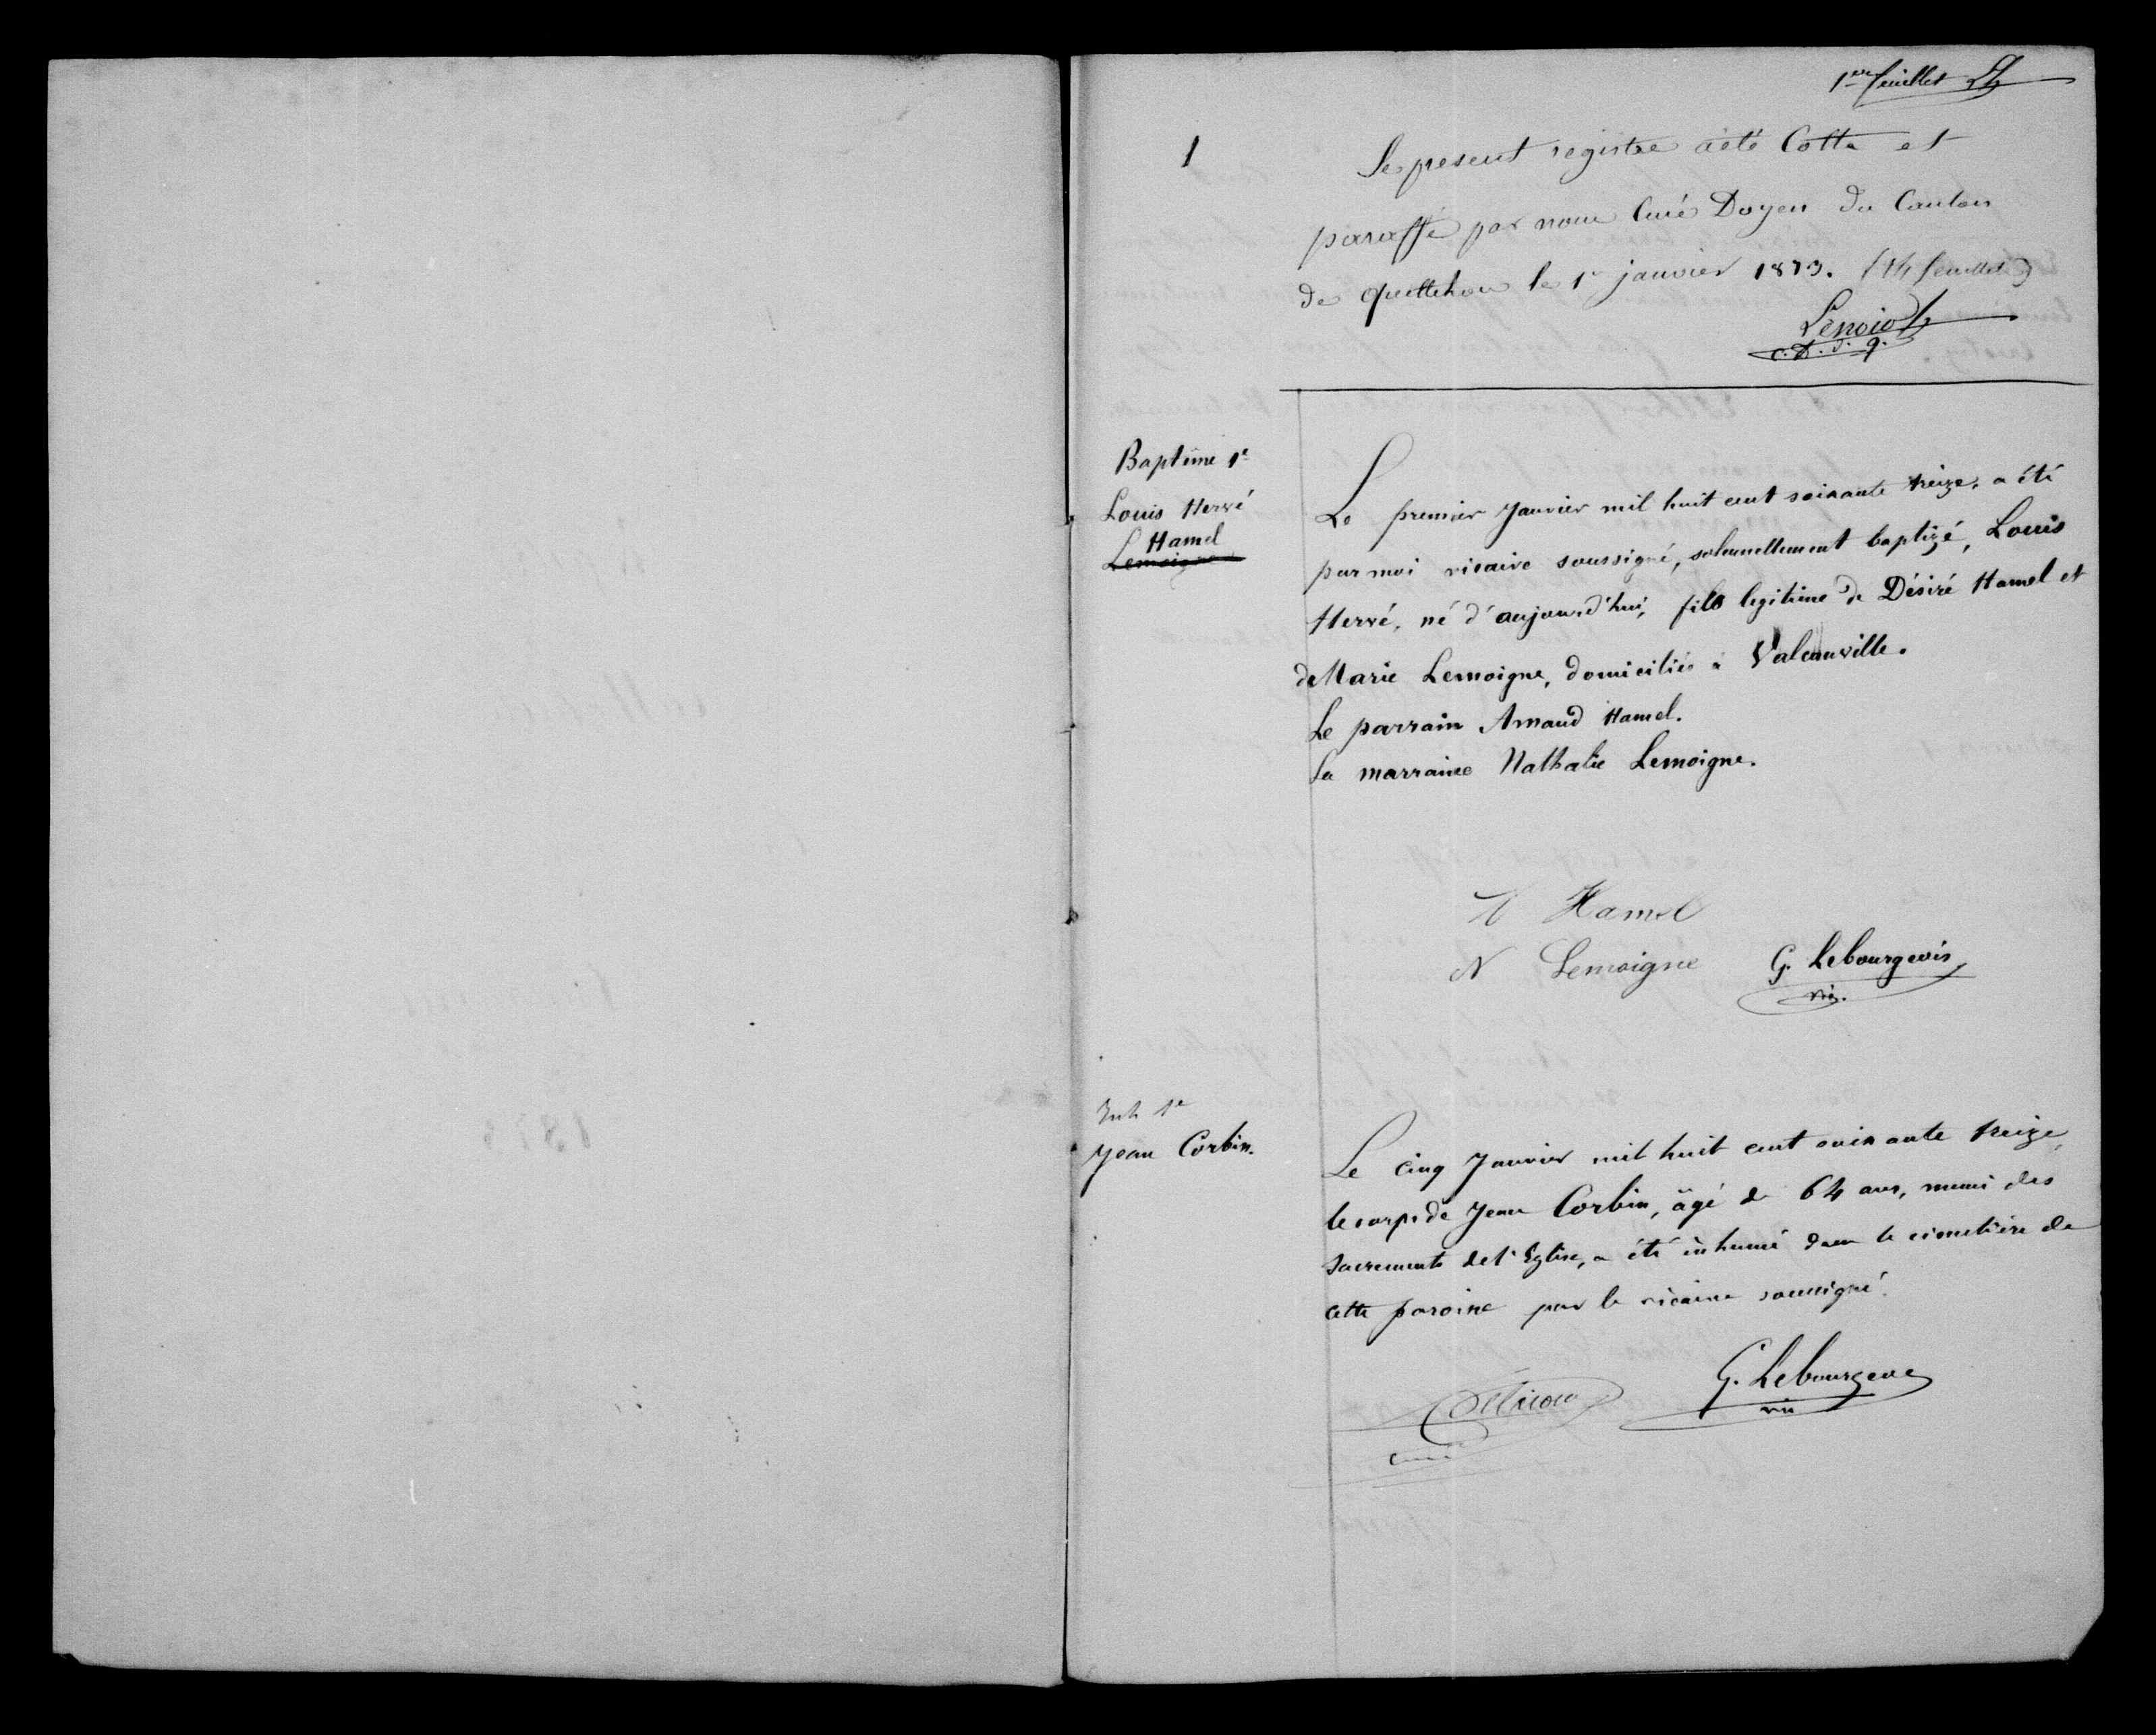 1er feuillet
1
Le present registre a été Cotté et
paraffé par nous Curé Doyen du Canton
de Quettehou le 1r janvier 1873. (14 feuillets)
Lenoir
c. D. d. q.
Baptême 1e
Louis Hervé
Hamel
Lemoigne
Le premier Janvier mil huit cent soixante treize, a été
par moi vicaire soussigné, solennellement baptizé, Louis
Hervé, né d'aujourd'hui, fils legitime de Désiré Hamel et
de Marie Lemoigne, domiciliés à Valcanville.
Le parrain Arnaud Hamel.
La marraine Nathalie Lemoigne.
A Hamel
N Lemoigne
G. Lebourgeois
vic.
Inh 1e
Jean Corbin.
Le cinq Janvier mil huit cent soixante treize,
le corps de Jean Corbin, âgé de 64 ans, muni des
sacrements de l'Eglise, a été inhumé dans le cimetière de
cette paroisse par le vicaire soussigné.
G. Lebourgeois
vic
curé